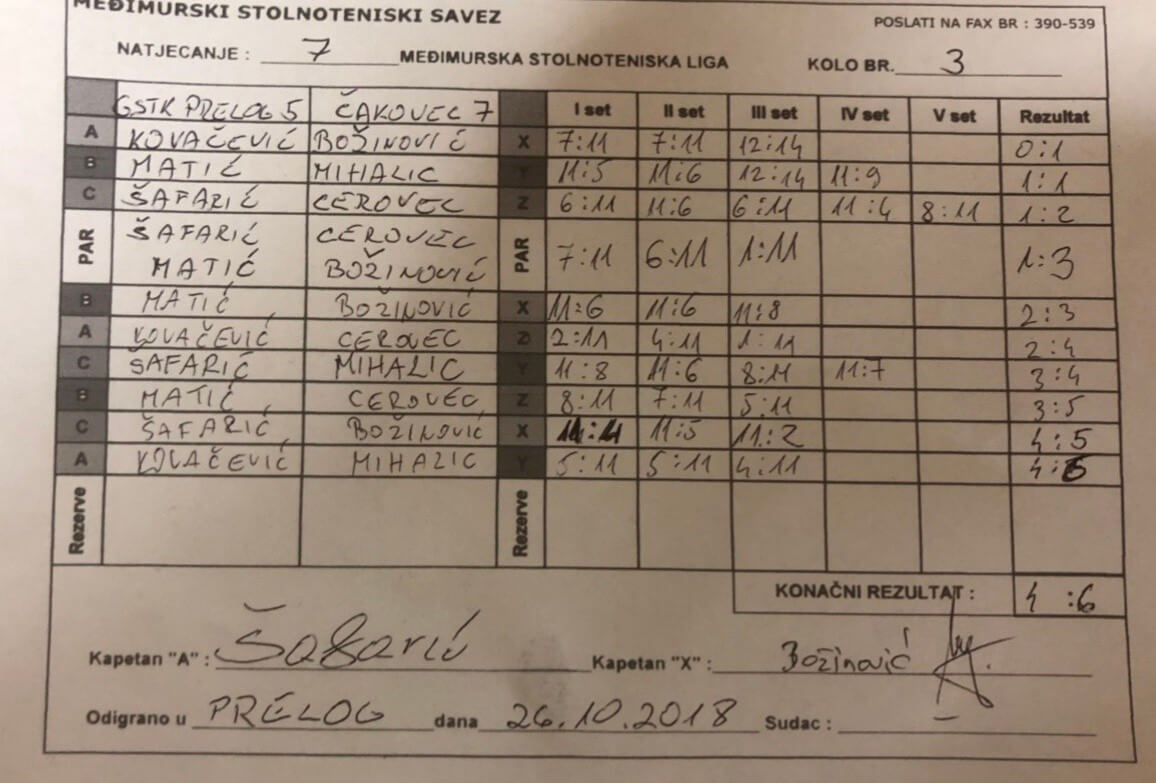 MEĐIMURSKI STOLNOTENISKI SAVEZ
POSLATI NA FAX BR : 390-539
NATJECANJE : 7 MEĐIMURSKA STOLNOTENISKA LIGA KOLO BR. 3
GSTK PRELOG 5 ČAKOVEC 7 I set II set III set IV set V set Rezultat
A KOVAČEVIĆ BOŽINOVIĆ X 7:11 7:11 12:14 0:1
B MATIĆ MIHALIC Y 11:5 11:6 12:14 11:9 1:1
C ŠAFARIĆ CEROVEC Z 6:11 11:6 6:11 11:4 8:11 1:2
PAR ŠAFARIĆ CEROVEC PAR 7:11 6:11 1:11 1:3
MATIĆ BOŽINOVIĆ
B MATIĆ BOŽINOVIĆ X 11:6 11:6 11:8 2:3
A KOVAČEVIĆ CEROVEC Z 2:11 4:11 1:11 2:4
C ŠAFARIĆ MIHALIC Y 11:8 11:6 8:11 11:7 3:4
B MATIĆ CEROVEC Z 8:11 7:11 5:11 3:5
C ŠAFARIĆ BOŽINOVIĆ X 11:5 11:2 4:5
A KOVAČEVIĆ MIHALIC Y 5:11 5:11 4:11 4:6
Rezerve Rezerve
KONAČNI REZULTAT : 4:6
Kapetan "A" : Šafarić Kapetan "X" : Božinović
Odigrano u PRELOG dana 26.10.2018 Sudac :